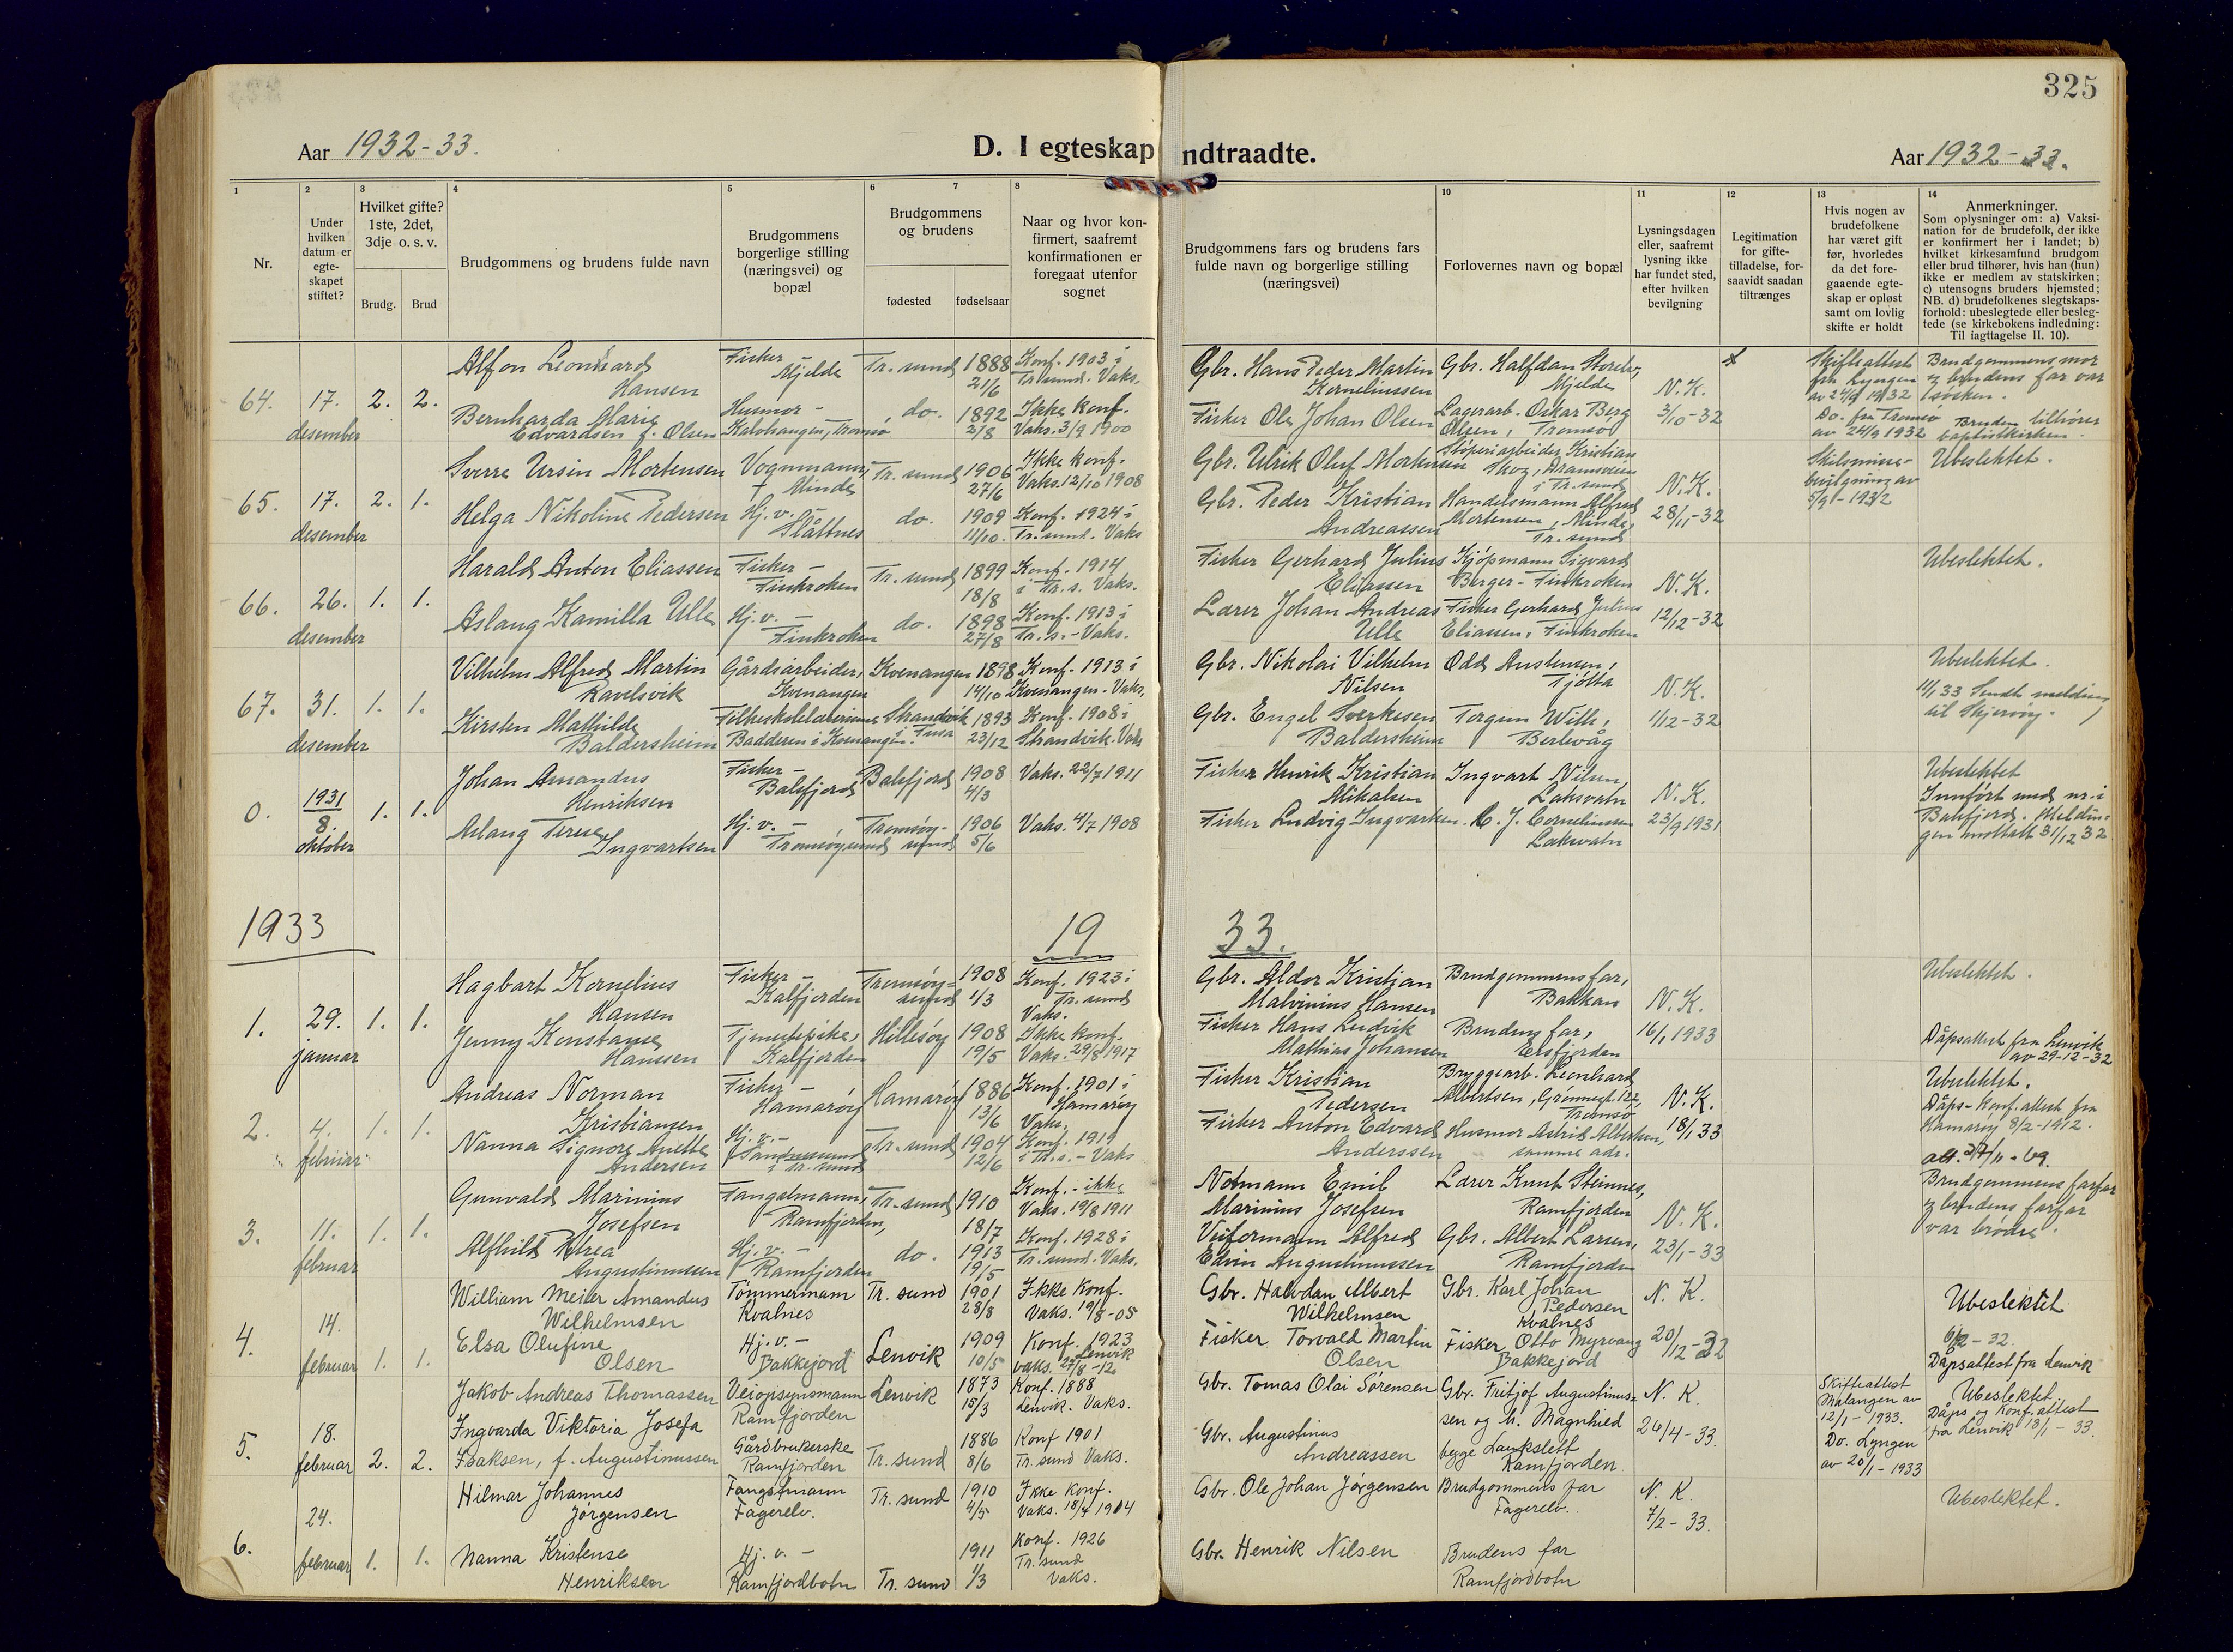 325
Aar 1932-33.
D. I egteskap indtraadte.
Aar 1932-33.
1 2 3 4 5 6 7 8 10 11 12 13 14
Nr.
Under
hvilken
datum er
egte-
skapet
stiftet?
Hvilket gifte?
1ste, 2det,
3dje o. s. v.
Brudg. Brud
Brudgommens og brudens fulde navn
Brudgommens
borgerlige stilling
(næringsvei) og
bopæl
Brudgommens
og brudens
fødested fødselsaar
Naar og hvor kon-
firmert, saafremt
konfirmationen er
foregaat utenfor
sognet
Brudgommens fars og brudens fars
fulde navn og borgerlige stilling
(næringsvei)
Forlovernes navn og bopæl
Lysningsdagen
eller, saafremt
lysning ikke
har fundet sted,
efter hvilken
bevilgning
Legitimation
for gifte-
tilladelse, for-
saavidt saadan
tiltrænges
Hvis nogen av
brudefolkene
har været gift
før, hvorledes
da det fore-
gaaende egte-
skap er opløst
samt om lovlig
skifte er holdt
Anmerkninger.
Som oplysninger om: a) Vaksi-
nation for de brudefolk, der ikke
er konfirmert her i landet; b)
hvilket kirkesamfund brudgom
eller brud tilhører, hvis han (hun)
ikke er medlem av statskirken;
c) utensogns bruders hjemsted;
NB. d) brudefolkenes slegtskaps-
forhold: ubeslegtede eller besleg-
tede (se kirkebokens indledning:
Til iagttagelse II. 10).
64. 17. desember 2. 2.
Alfon Leonhard
Hansen
Fisker -
Mjelde
Tr. sund 1888
21/6
Konf. 1903 i
Tr.sund. Vaks.
Bernharda Marie
Edvardsen f. Olsen
Husmor -
Kalvhaugen, Tromsø
do. 1892
2/8
Ikke konf.
Vaks. 3/9 1900
Gbr. Hans Peder Martin
Korneliussen
Gbr. Halfdan Storelv,
Mjelde
Fisker Ole Johan Olsen
Lagerarb. Oskar Berg
Olsen, Tromsø
N. K.
3/10-32
x
Skifteattest
fra Lyngen
av 1932
Do. fra Tromsø
av 24/9 1932
Brudgommens mor
og brudens far var
søsken.
Bruden tilhører
baptistkirken.
65. 17. desember 2. 1.
Sverre Ursin Mortensen
Vognmann,
Minde
Tr. sund 1906
27/6
Ikke konf.
Vaks. 12/10 1908
Helga Nikoline Pedersen
Hj. v. -
Slåttnes
do. 1909
11/10.
Konf. 1924 i
Tr. sund. Vaks
Gbr. Ulrik Oluf Mortensen
Støperiarbeider Kristian
Skog,
i Tr. sund
Gbr. Peder Kristian
Andreassen
Handelsmann Alfred
Mortensen, Minde,
Tr. sund
N. K.
28/11-32
Skilsmisse-
bevilgning av
5/9-1932
Ubeslektet.
66. 26. desember 1. 1.
Harald Anton Eliassen
Fisker -
Finkroken
Tr. sund 1899
18/8
Konf. 1914
i Tr. s. Vaks.
Aslaug Kamilla Ulle
Hj. v. -
Finkroken
do. 1898
27/8
Konf. 1913 i
Tr. s. - Vaks.
Fisker Gerhard Julius
Eliassen
Kjøpmann Sigvard
Berger - Finkroken
Lærer Johan Andreas
Ulle
Fisker Gerhard Julius
Eliassen, Finkroken
N. K.
12/12-32
Ubeslektet.
67. 31. desember 1. 1.
Vilhelm Alfred Martin
Ravelsvik
Gårdsarbeider,
Kvenangen
Kvenangen 1898
14/10
Konf. 1913 i
Kvenangen. Vaks.
Kirsten Mathilde
Baldersheim
Folkeskolelærerinne
Badderen i Kvenangen.
Strandvik
i Fusa
1893
23/12
Konf. 1908 i
Strandvik. Vaks
Gbr. Nikolai Vilhelm
Nilsen
Odd Austensen,
Tjötta
Gbr. Engel Sverkesen
Baldersheim
Torgun Willi,
Berlevåg
N. K.
1/12-32
Ubeslektet.
11/1 33 Sendt melding
til Skjervøy.
0. 1931
8.
oktober 1. 1.
Johan Amandus
Henriksen
Fisker -
Balsfjord
Balsfjord 1908
4/3
Vaks. 22/7 1911
Aslaug Terese
Ingvartsen
Hj. v. -
Tromsøysund
Tromsøy-
sund
1906
5/6
Vaks. 4/7 1908
Fisker Henrik Kristian
Mikalsen
Ingvart Nilsen,
Laksvatn
Fisker Ludvig Ingvartsen.
C. J. Corneliussen
Laksvatn
N. K.
23/9 1931
Ubeslektet
Innført med nr. i
Balsfjord. Meldin-
gen mottatt 31/12 32
1933 19 33.
1. 29. januar 1. 1.
Hagbart Kornelius
Hansen
Fisker -
Kalfjorden
Tromsøy-
sund
1908
1/3
Konf. 1923 i
Tr. sund
Vaks.
Jenny Konstanse
Hanssen
Tjenestepike,
Kalfjorden
Hillesøy 1908
19/5
Ikke konf.
Vaks. 29/8 1917
Gbr. Aldor Kristian
Malvinius Hansen
Brudgommens far,
Bakkan
Fisker Hans Ludvik
Mathias Johansen
Brudens far,
Ersfjorden
N. K.
16/1 1933
Ubeslektet.
Dåpsattest fra Lenvik
av 29-12-32
2. 4. februar 1. 1.
Andreas Norman
Kristiansen
Fisker -
Hamarøy
Hamarøy 1886
13/6
Konf. 1901 i
Hamarøy
Vaks.
Nanna Signore Anette
Andersen
Hj. v. -
Sandnessund
i Tr. sund
Tr. sund 1904
12/6
Konf. 1919
i Tr. s. - Vaks
Fisker Kristian
Pedersen
Bryggearb. Leonhard
Albertsen, Grønnegt 122,
Tromsø
Fisker Anton Edvard
Anderssen
Husmor Astrid Albertsen,
samme adr.
N. K.
18/1 33
Ubeslektet.
Dåps-konf. attest fra
Hamarøy 8/2-1912.
att. 27/11-69.
3. 11. februar 1. 1.
Gunvald Marinius
Josefsen
Fangstmann,
Ramfjorden,
Tr. sund 1910
18/7
Konf. - ikke
Vaks. 19/8 1911
Alfhild Petrea
Augustinussen
Hj. v. -
Ramfjorden
do. 1913
19/5
Konf. 1928 i
Tr. sund. Vaks.
Notmann Emil
Marinius Josefsen
Lærer Knut Steinnes,
Ramfjorden
Alfred
Edvin Augustinussen
Gbr. Albert Larsen,
Ramfjorden
N. K.
23/1-33
Brudgommens farfar
og brudens farfar
var brødre.
4. 14. februar 1. 1.
William Meiler Amandus
Wilhelmsen
Tømmermann
Kvalnes
Tr. sund 1901
28/8
Ikke konf.
Vaks. 19/8-05
Elsa Olufine
Olsen
Hj. v. -
Bakkejord
Lenvik 1909
10/5
Konf. 1923
Lenvik
vaks. 27/8-12
Gbr. Halvdan Albert
Wilhelmsen
Gbr. Karl Johan
Pedersen
Kvalnes
Fisker Torvald Martin
Olsen
Fisker Otto Myrvang
Bakkejord
N. K.
20/12-32
Ubeslektet
6/2-32.
Dåpsattest fra Lenvik
5. 18. februar 2. 2.
Jakob Andreas Thomassen
Veiopsynsmann
Ramfjorden
Lenvik 1873
15/3
Konf. 1888
Lenvik. Vaks.
Ingvarda Viktoria Josefa
Isaksen, f. Augustinussen
Gårdbrukerske
Ramfjorden
Tr. sund 1886
8/6
Konf 1901
Tr. sund Vaks.
Gbr. Tomas Olai Sørensen
Gbr. Fritjof Augustinus-
sen og h. Magnhild
begge Laukslett
Ramfjorden.
Gbr. Augustinus
Andreassen
N. K.
26/4-33.
Skifteattest
Malangen av
12/1-1933.
Do. Lyngen
av 20/1-1933
Ubeslektet.
Dåps og Konf. attest
fra Lenvik 18/1-33.
6. 24. februar 1. 1.
Hilmar Johannes
Jørgensen
Fangstmann
Fagerelv.
Tr. sund 1910
4/5
Ikke konf.
Vaks. 18/7 1914
Nanna Kristense
Henriksen
Hj. v. -
Ramfjordbotn
Tr. sund 1911
1/3
Konf. 1926
Tr. sund
Vaks.
Gbr. Ole Johan Jørgensen
Brudgommens far
Fagerelv.
Gbr. Henrik Nilsen
Brudens far
Ramfjordbotn
N. K.
7/2-33.
Ubeslektet.